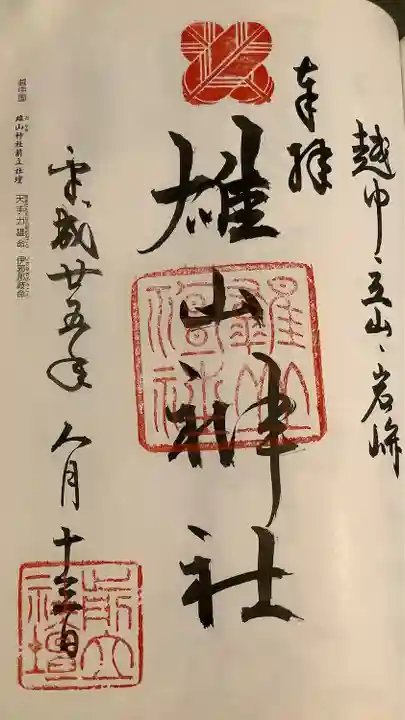 越中、立山、岩峅
奉拝
雄山神社
平成廿五年八月十三日
越中国 雄山神社前立社壇 天手力雄命 伊邪那岐命
雄山神社
前立社壇